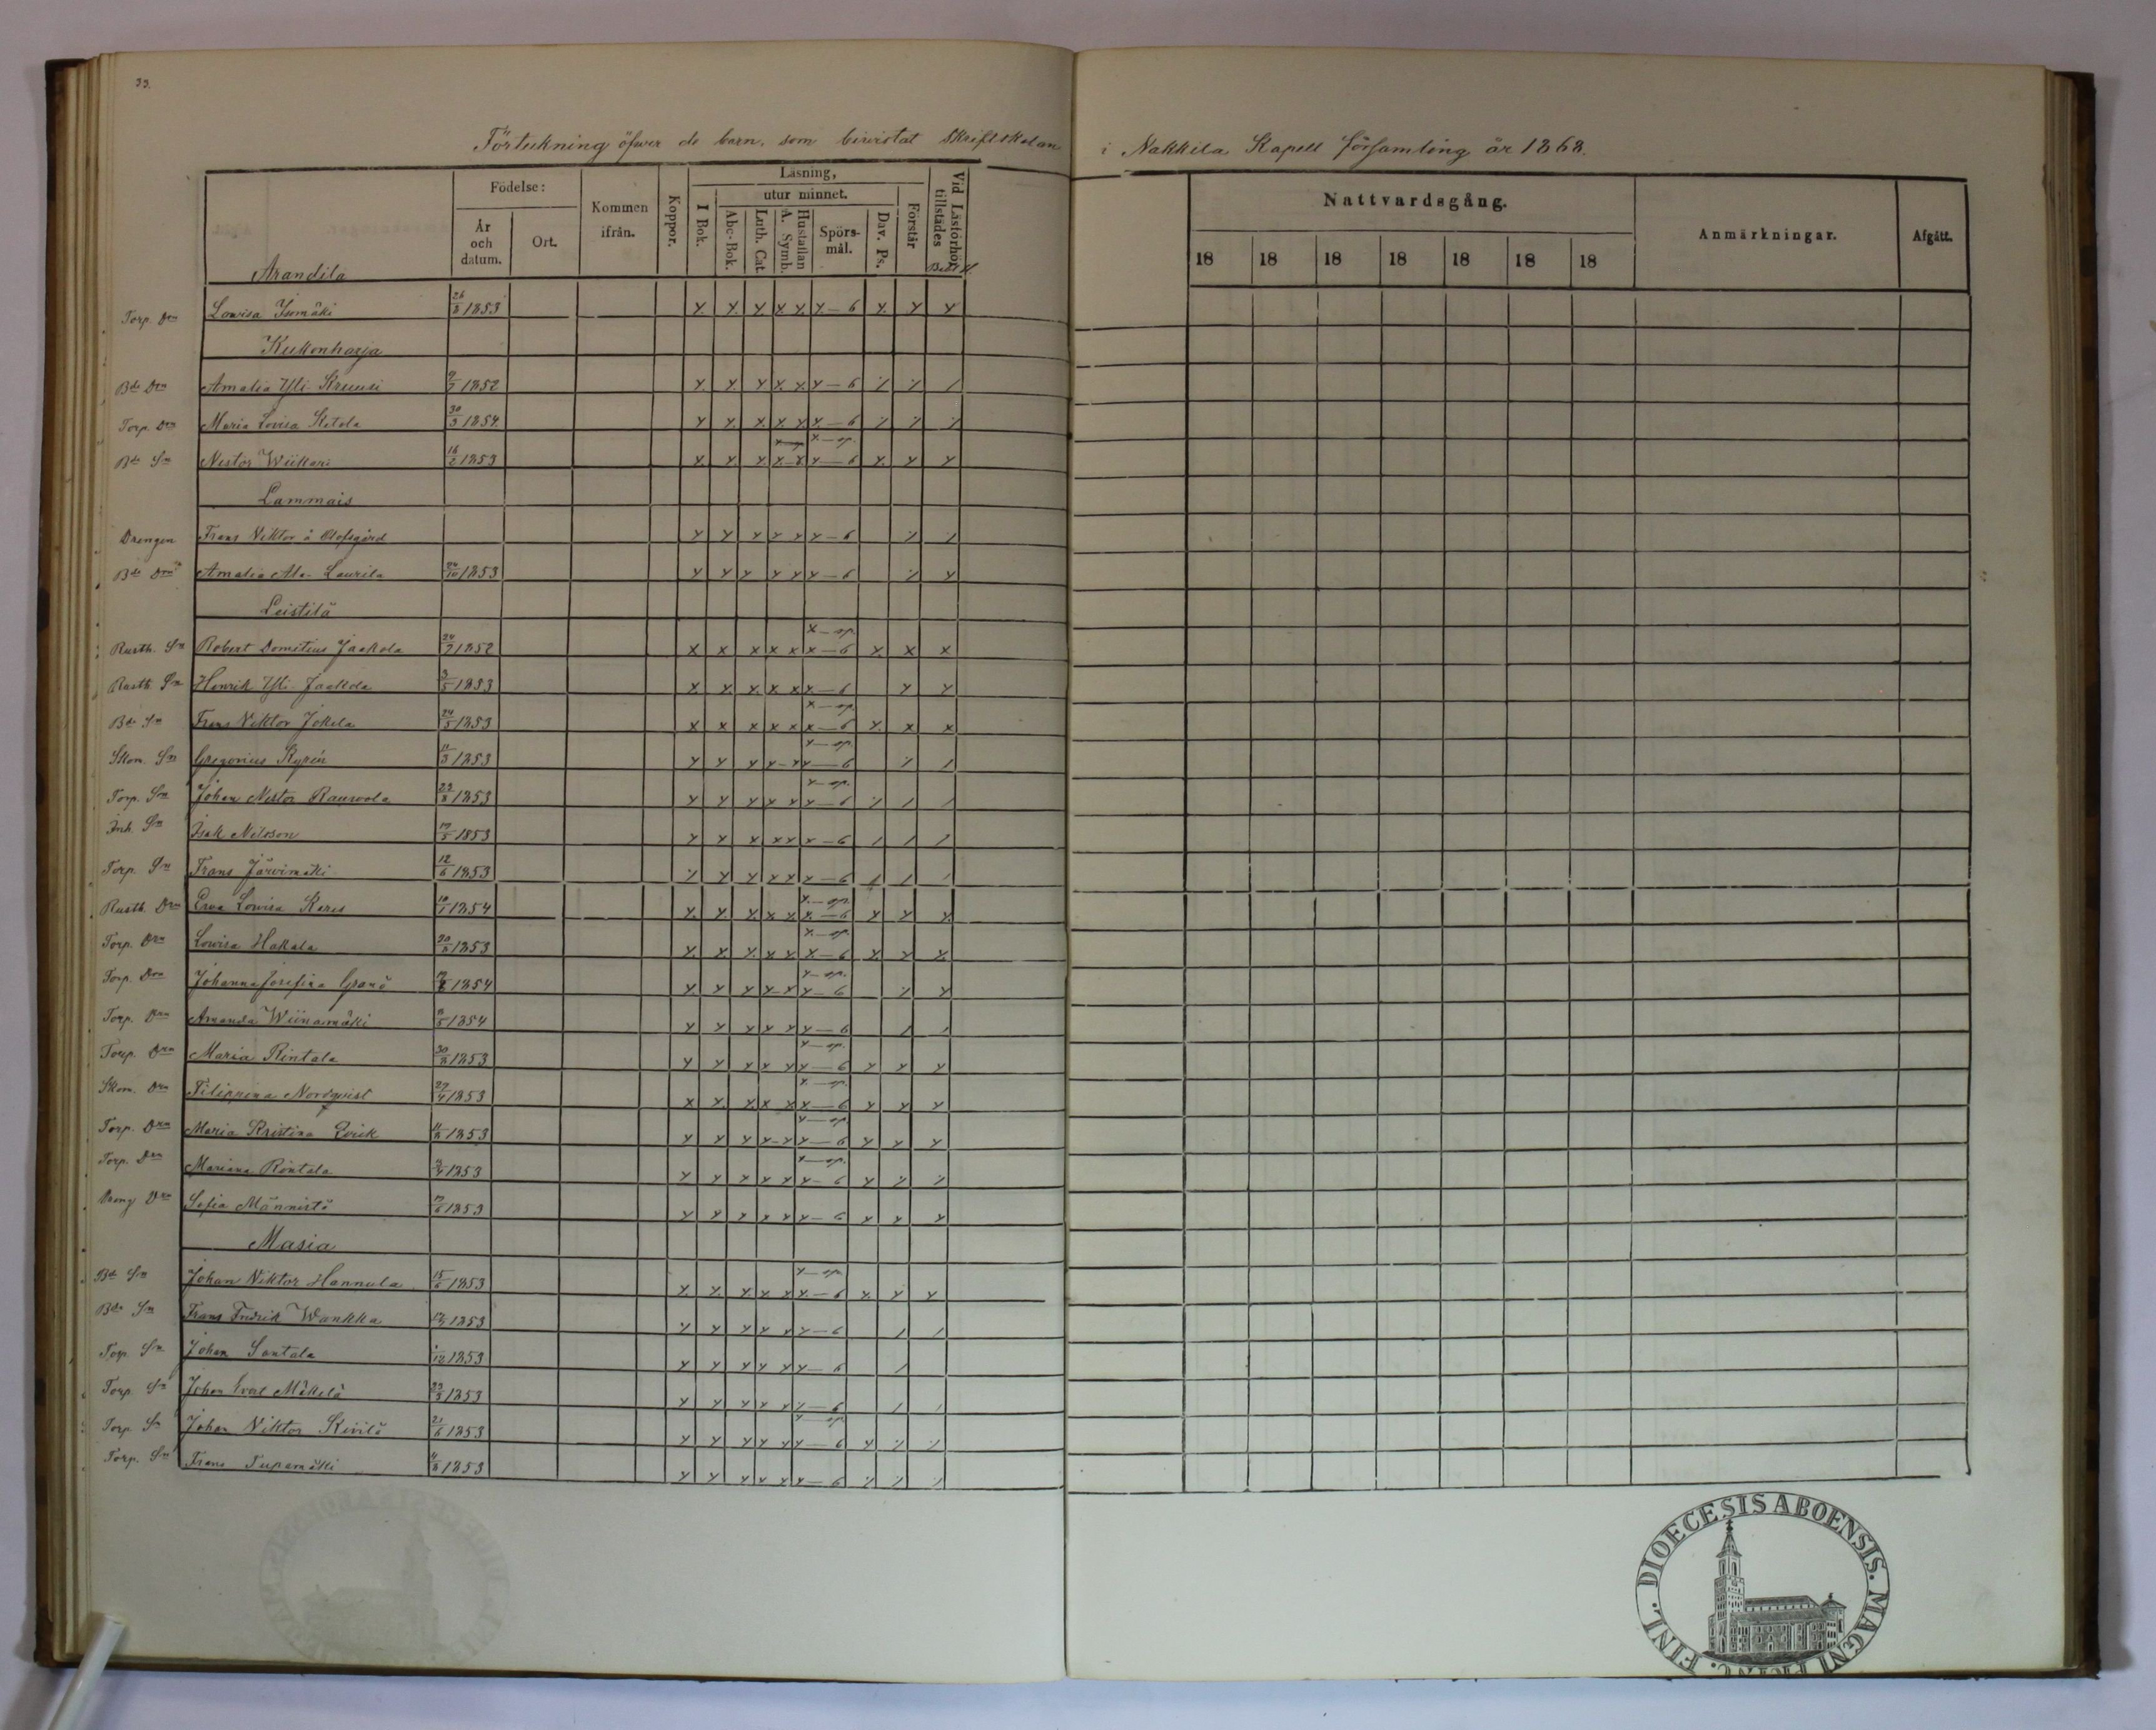 33.
Förteckning öfver de barn, som bevistat Skriftskolan i Nakkila Kapell församling år 1868.
Födelse: År och datum. Ort. Kommen ifrån. Koppor. Läsning, I Bok. utur minnet. Abc-Bok. Luth. Cat. A. Symb. Hustaflan Spörsmål. Dav. Ps. Förstår Vid Läsförhör tillstädes
Nattvardsgång. 18 18 18 18 18 18 18 Anmärkningar. Afgått.
Arandila
Torp. Drn Lovisa Isomäki 26/8 1853 x x x x x x–6 x x x
Kukonharja
Bde Drn Amalia Yli-Kruusi 9/7 1852 x x x x x x–6 ⁒ ⁒ /
Torp. Drn Maria Lovisa Ketola 30/3 1854 x x x x x x–6 ⁒ ⁒ ⁒
x–op.
Bde Sn Nestor Wiikari 16/2 1853 x x x x x x–6 x x x
Lammais
Drengen Frans Viktor å Olofsgård x x x x x x–6 ⁒ /
Bde Drn Amalia Ala-Laurila /10 1853 x x x x x x–6 ⁒ x
Leistilä
x–op.
Rusth. Sn Robert Domitius Jaakola 24/7 1852 x x x x x x–6 x x x
Rusth. Sn Henrik Yli-Jaakola 3/5 1853 x x x x x x–6 x x
x–op.
Bde Sn Frans Viktor Jokela 24/5 1853 x x x x x x–6 x x x
x–op.
Skom. Sn Gregorius Kyrén 11/3 1853 x x x x x x–6 ⁒ /
x–op.
Torp. Sn Johan Nestor Rauvola 22/8 1853 x x x x x x–6 ⁒ / /
Inh. Sn Isak Nilsson /5 1853 x x x x x x–6 / / /
Torp. Sn Frans Järvimäki 12/6 1853 ⁒ x x x x x–6 / /
x–op.
Rusth. Drn Eva Lovisa Keres 10/1 1854 x x x x x x–6 x x x
x–op.
Torp. Drn Lovisa Hakala 1853 x x x x x x–6 x x x
x–op.
Torp. Drn Johanna Josefina Granö 1854 x x x x x x–6 ⁒ x
Torp. Drn Amanda Wiinamäki 1854 x x x x x x–6 / /
x–op.
Torp. Drn Maria Rintala 30/8 1853 x x x x x x–6 x x x
x–op.
Skom. Drn Filippina Nordqvist 27/4 1853 x x x x x x–6 x x x
x–op.
Torp. Drn Maria Kristina 1853 x x x x x x–6 x x x
x–op.
Torp. Drn Mariana Rintala 1853 x x x x x x–6 x ⁒ ⁒
Dreng Drn Sofia Männistö 1853 x x x x x x–6 x x x
Masia
x–op.
Bde Sn Johan Viktor Hannula 15/6 1853 x x x x x x–6 x x x
Bde Sn Frans Fredrik Wankka 1853 ⁒ x x x x x–6 / /
Torp. Sn Johan Santala /12 1853 x x x x x x–6 /
Torp. Sn Johan Mäkelä 22/3 1853 x x x x x x–6 / /
x–op.
Torp. Sn Johan Viktor Kivilä 21/6 1853 x x x x x x–6 x ⁒ ⁒
Torp. Sn Frans Tupamäki 1853 x x x x x x–6 ⁒ ⁒ ⁒
DIOECESIS ABOENSIS. MAGNI PRINC. FINL.